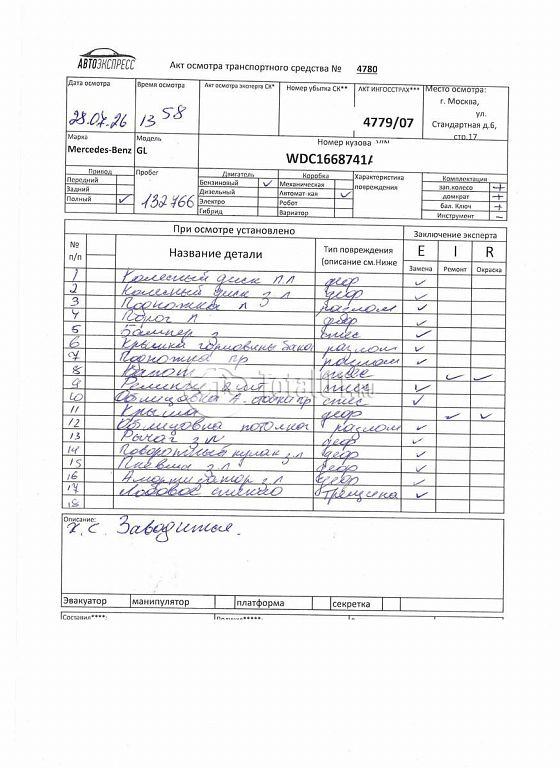 АВТОЭКСПРЕСС
Акт осмотра транспортного средства № 4780
Дата осмотра Время осмотра Акт осмотра эксперта СК* Номер убытка СК** АКТ ИНГОССТРАХ*** Место осмотра:
28.07.26 13 58 4779/07 г. Москва,
ул.
Стандартная д.6,
стр.17
Марка Модель Номер кузова
Mercedes-Benz GL WDC1668741
Привод Пробег Двигатель Коробка Характеристика повреждения Комплектация
Передний Бензиновый ✓ Механическая зап.колесо +
Задний Дизельный Автомат-кая ✓ домкрат +
Полный ✓ 132766 Электро Робот бал. Ключ +
Гибрид Вариатор Инструмент –
При осмотре установлено Заключение эксперта
№ п/п Название детали Тип повреждения (описание см.Ниже E I R
Замена Ремонт Окраска
1 Колесный диск п л деф ✓
2 Колесный диск з л деф ✓
3 Подножка л разлом ✓
4 Порог л деф ✓
5 Бампер з ✓
6 Крышка горловины бака разлом ✓
7 Подножка пр разлом ✓
8 Капот ✓ ✓
9 ✓
10 Облицовка ✓
11 Крыша деф ✓ ✓
12 Облицовка потолка разлом ✓
13 Рычаг з л деф ✓
14 Поворотный кулак з л деф ✓
15 Пневма з л деф ✓
16 Амортизатор з л деф ✓
17 Лобовое стекло Трещина ✓
18
Описание:
х.с. Заводится.
Эвакуатор манипулятор платформа секретка
Составил****: